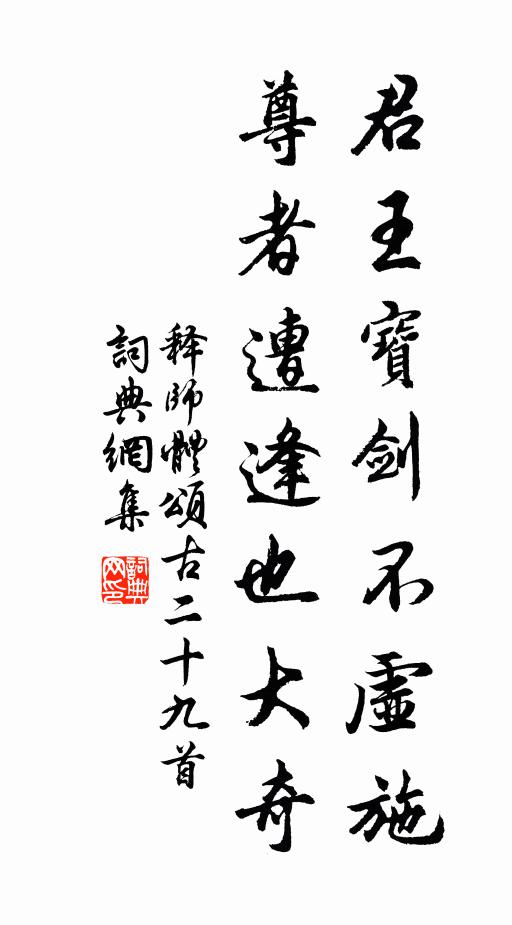 君王寶劍不虛施
尊者遭逢也大奇
释師體頌古二十九首
詞典網集
詞典网印